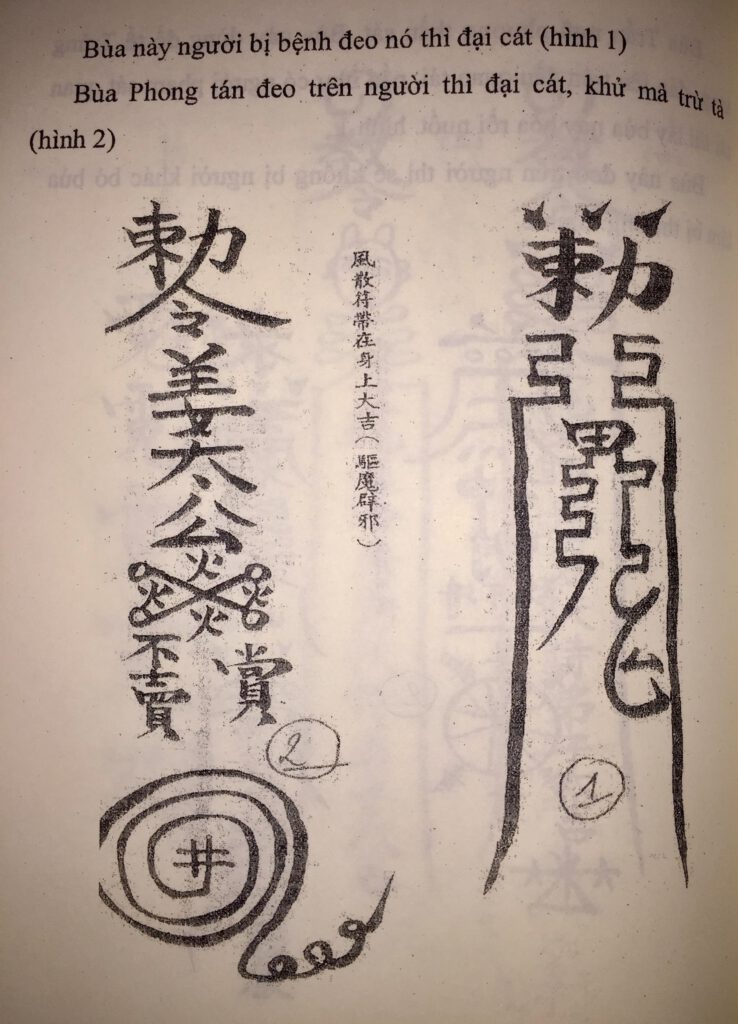 Bùa này người bị bệnh đeo nó thì đại cát (hình 1)
Bùa Phong tán đeo trên người thì đại cát, khử mà trừ tà
(hình 2)
勅令姜太公
火
火火
火
不賣
賞
井
2
風散符帶在身上大吉（驅魔辟邪）
勅
1